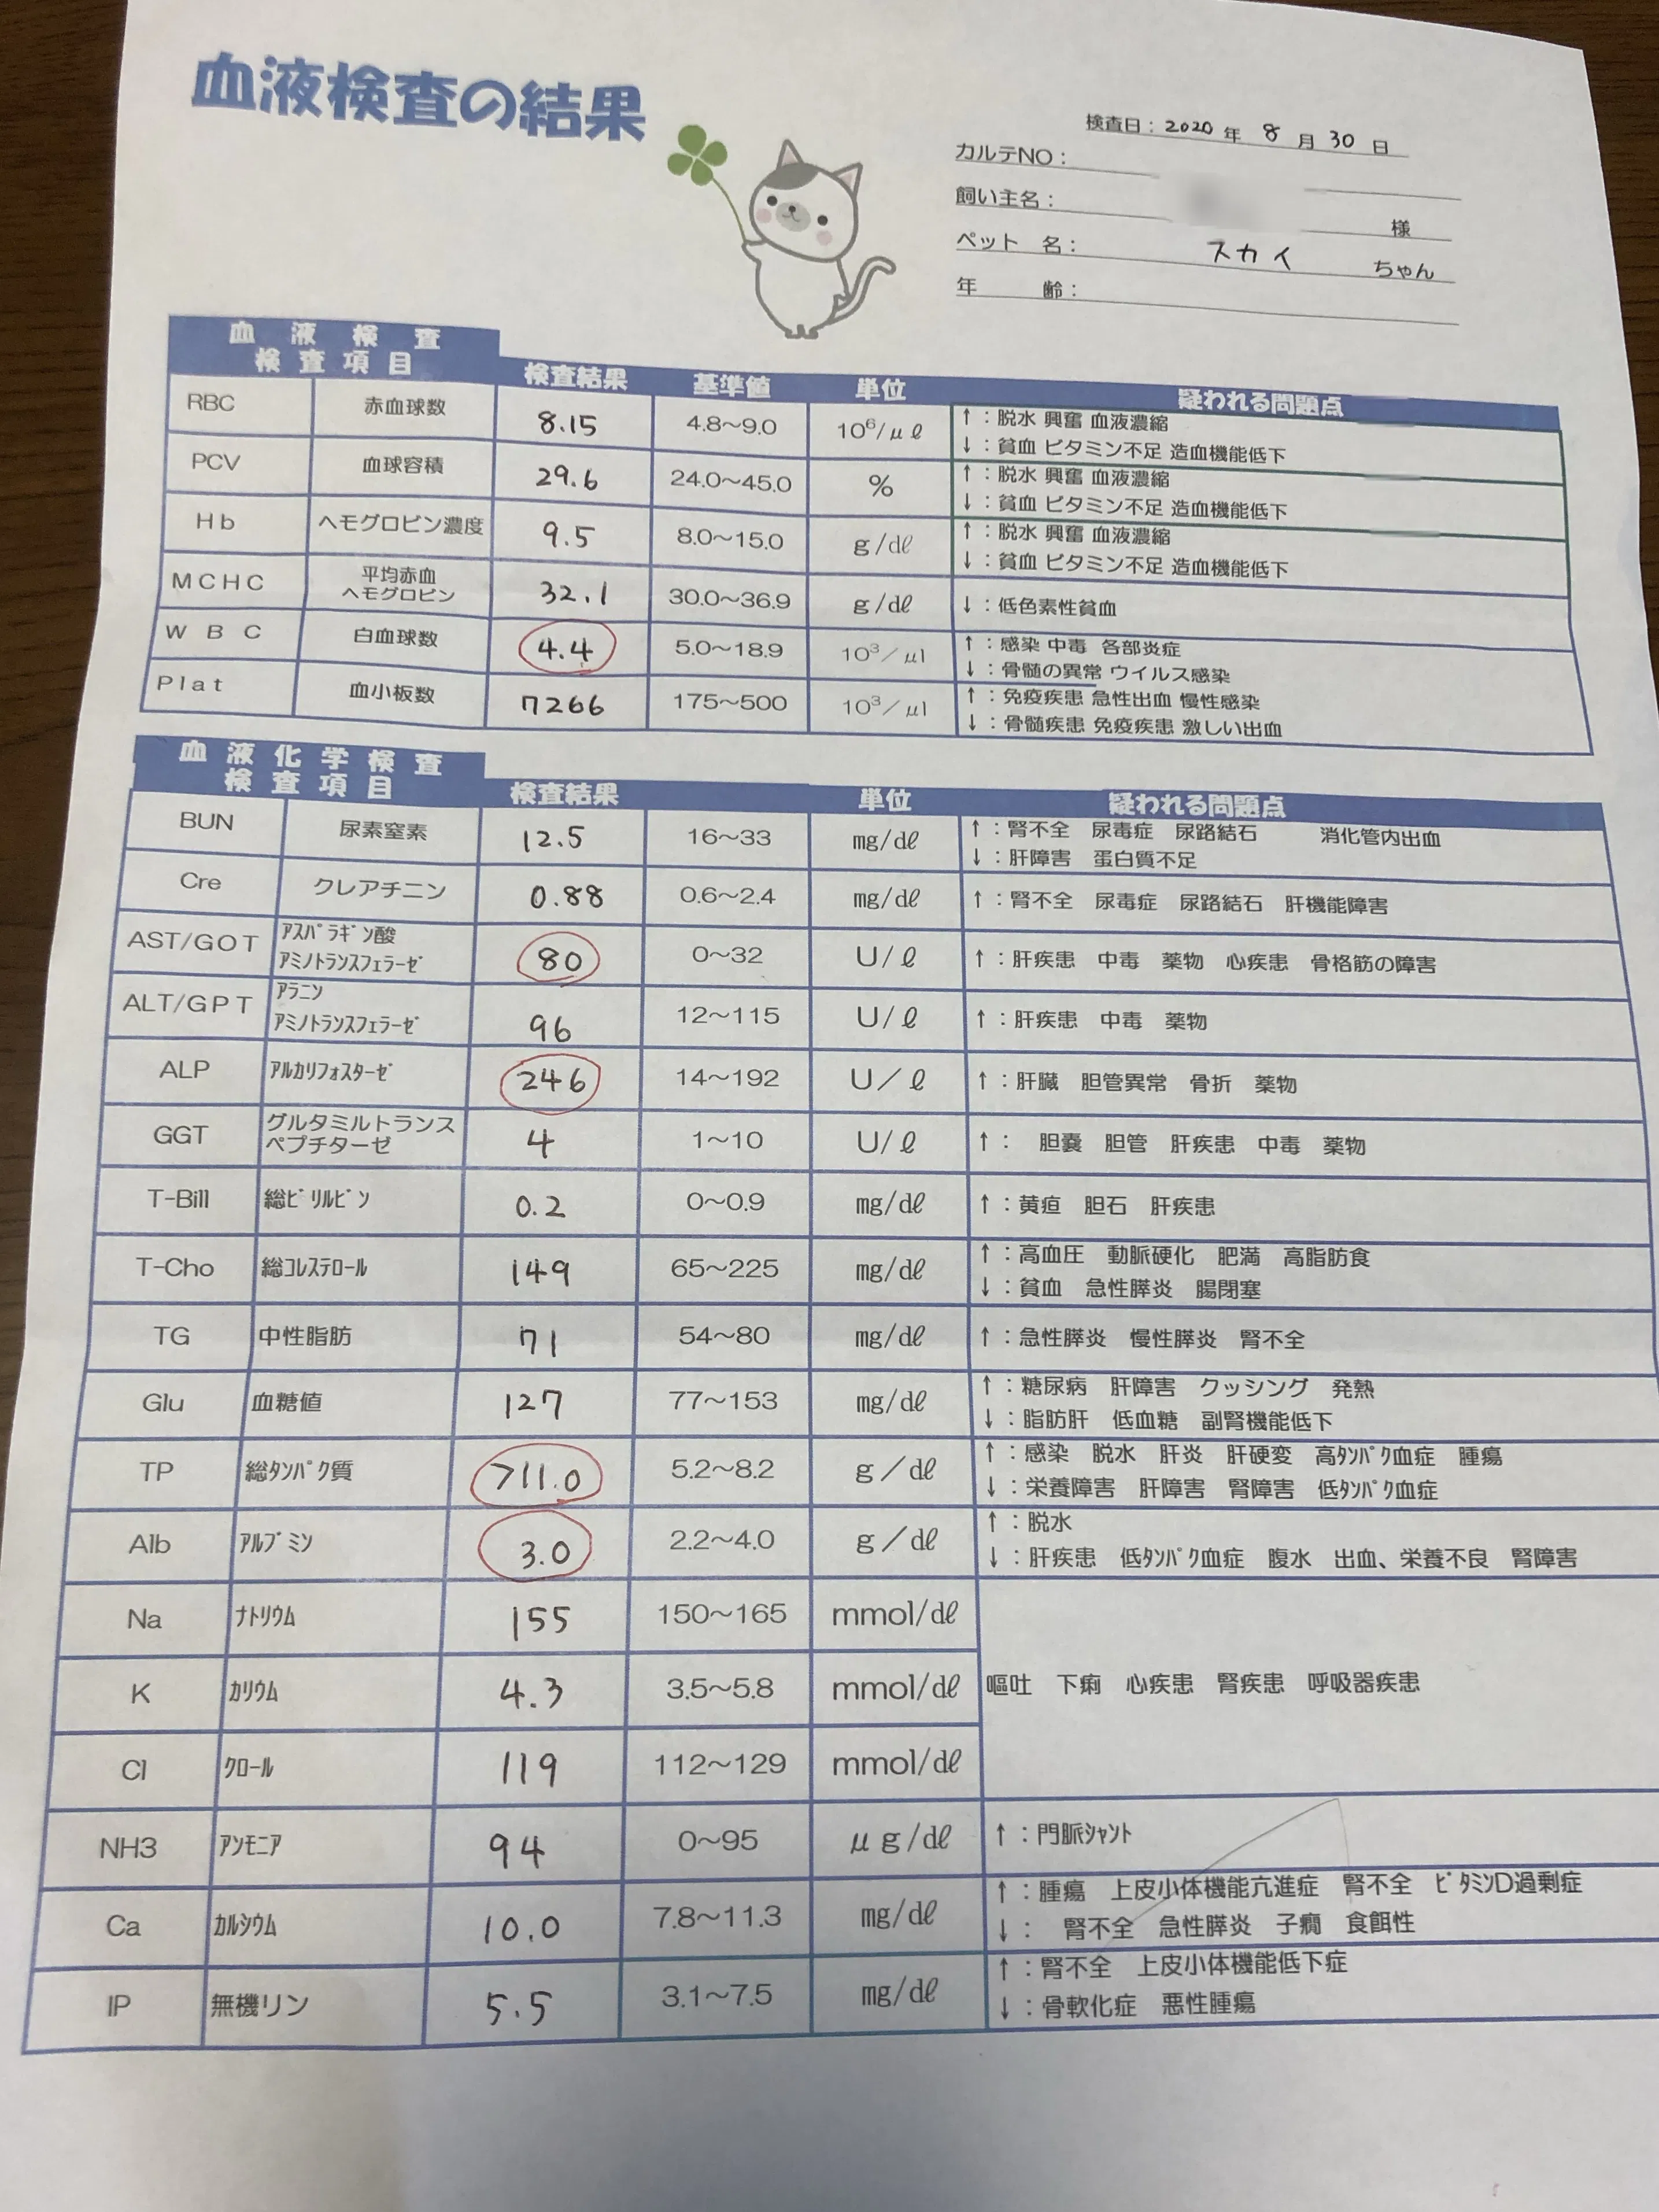 血液検査の結果
検査日：2020 年 8 月 30 日
カルテNO：
飼い主名： 様
ペット 名： スカイ ちゃん
年 齢：
血 液 検 査
検 査 項 目 検査結果 基準値 単位 疑われる問題点
RBC 赤血球数 8.15 4.8～9.0 10⁶/μℓ ↑：脱水 興奮 血液濃縮
↓：貧血 ビタミン不足 造血機能低下
PCV 血球容積 29.6 24.0～45.0 % ↑：脱水 興奮 血液濃縮
↓：貧血 ビタミン不足 造血機能低下
Hb ヘモグロビン濃度 9.5 8.0～15.0 g/dℓ ↑：脱水 興奮 血液濃縮
↓：貧血 ビタミン不足 造血機能低下
MCHC 平均赤血
ヘモグロビン 32.1 30.0～36.9 g/dℓ ↓：低色素性貧血
WBC 白血球数 4.4 5.0～18.9 10³/μl ↑：感染 中毒 各部炎症
↓：骨髄の異常 ウイルス感染
Plat 血小板数 7266 175～500 10³/μl ↑：免疫疾患 急性出血 慢性感染
↓：骨髄疾患 免疫疾患 激しい出血
血 液 化 学 検 査
検 査 項 目 検査結果 単位 疑われる問題点
BUN 尿素窒素 12.5 16～33 mg/dℓ ↑：腎不全 尿毒症 尿路結石 消化管内出血
↓：肝障害 蛋白質不足
Cre クレアチニン 0.88 0.6～2.4 mg/dℓ ↑：腎不全 尿毒症 尿路結石 肝機能障害
AST/GOT ｱｽﾊﾟﾗｷﾞﾝ酸
ｱﾐﾉﾄﾗﾝｽﾌｪﾗｰｾﾞ 80 0～32 U/ℓ ↑：肝疾患 中毒 薬物 心疾患 骨格筋の障害
ALT/GPT ｱﾗﾆﾝ
ｱﾐﾉﾄﾗﾝｽﾌｪﾗｰｾﾞ 96 12～115 U/ℓ ↑：肝疾患 中毒 薬物
ALP ｱﾙｶﾘﾌｫｽﾀｰｾﾞ 246 14～192 U/ℓ ↑：肝臓 胆管異常 骨折 薬物
GGT グルタミルトランス
ペプチターゼ 4 1～10 U/ℓ ↑： 胆嚢 胆管 肝疾患 中毒 薬物
T-Bill 総ﾋﾞﾘﾙﾋﾞﾝ 0.2 0～0.9 mg/dℓ ↑：黄疸 胆石 肝疾患
T-Cho 総ｺﾚｽﾃﾛｰﾙ 149 65～225 mg/dℓ ↑：高血圧 動脈硬化 肥満 高脂肪食
↓：貧血 急性膵炎 腸閉塞
TG 中性脂肪 71 54～80 mg/dℓ ↑：急性膵炎 慢性膵炎 腎不全
Glu 血糖値 127 77～153 mg/dℓ ↑：糖尿病 肝障害 クッシング 発熱
↓：脂肪肝 低血糖 副腎機能低下
TP 総ﾀﾝﾊﾟｸ質 >11.0 5.2～8.2 g/dℓ ↑：感染 脱水 肝炎 肝硬変 高ﾀﾝﾊﾟｸ血症 腫瘍
↓：栄養障害 肝障害 腎障害 低ﾀﾝﾊﾟｸ血症
Alb ｱﾙﾌﾞﾐﾝ 3.0 2.2～4.0 g/dℓ ↑：脱水
↓：肝疾患 低ﾀﾝﾊﾟｸ血症 腹水 出血、栄養不良 腎障害
Na ﾅﾄﾘｳﾑ 155 150～165 mmol/dℓ
K ｶﾘｳﾑ 4.3 3.5～5.8 mmol/dℓ 嘔吐 下痢 心疾患 腎疾患 呼吸器疾患
Cl ｸﾛｰﾙ 119 112～129 mmol/dℓ
NH3 ｱﾝﾓﾆｱ 94 0～95 μg/dℓ ↑：門脈ｼｬﾝﾄ
Ca ｶﾙｼｳﾑ 10.0 7.8～11.3 mg/dℓ ↑：腫瘍 上皮小体機能亢進症 腎不全 ﾋﾞﾀﾐﾝD過剰症
↓： 腎不全 急性膵炎 子癇 食餌性
IP 無機リン 5.5 3.1～7.5 mg/dℓ ↑：腎不全 上皮小体機能低下症
↓：骨軟化症 悪性腫瘍